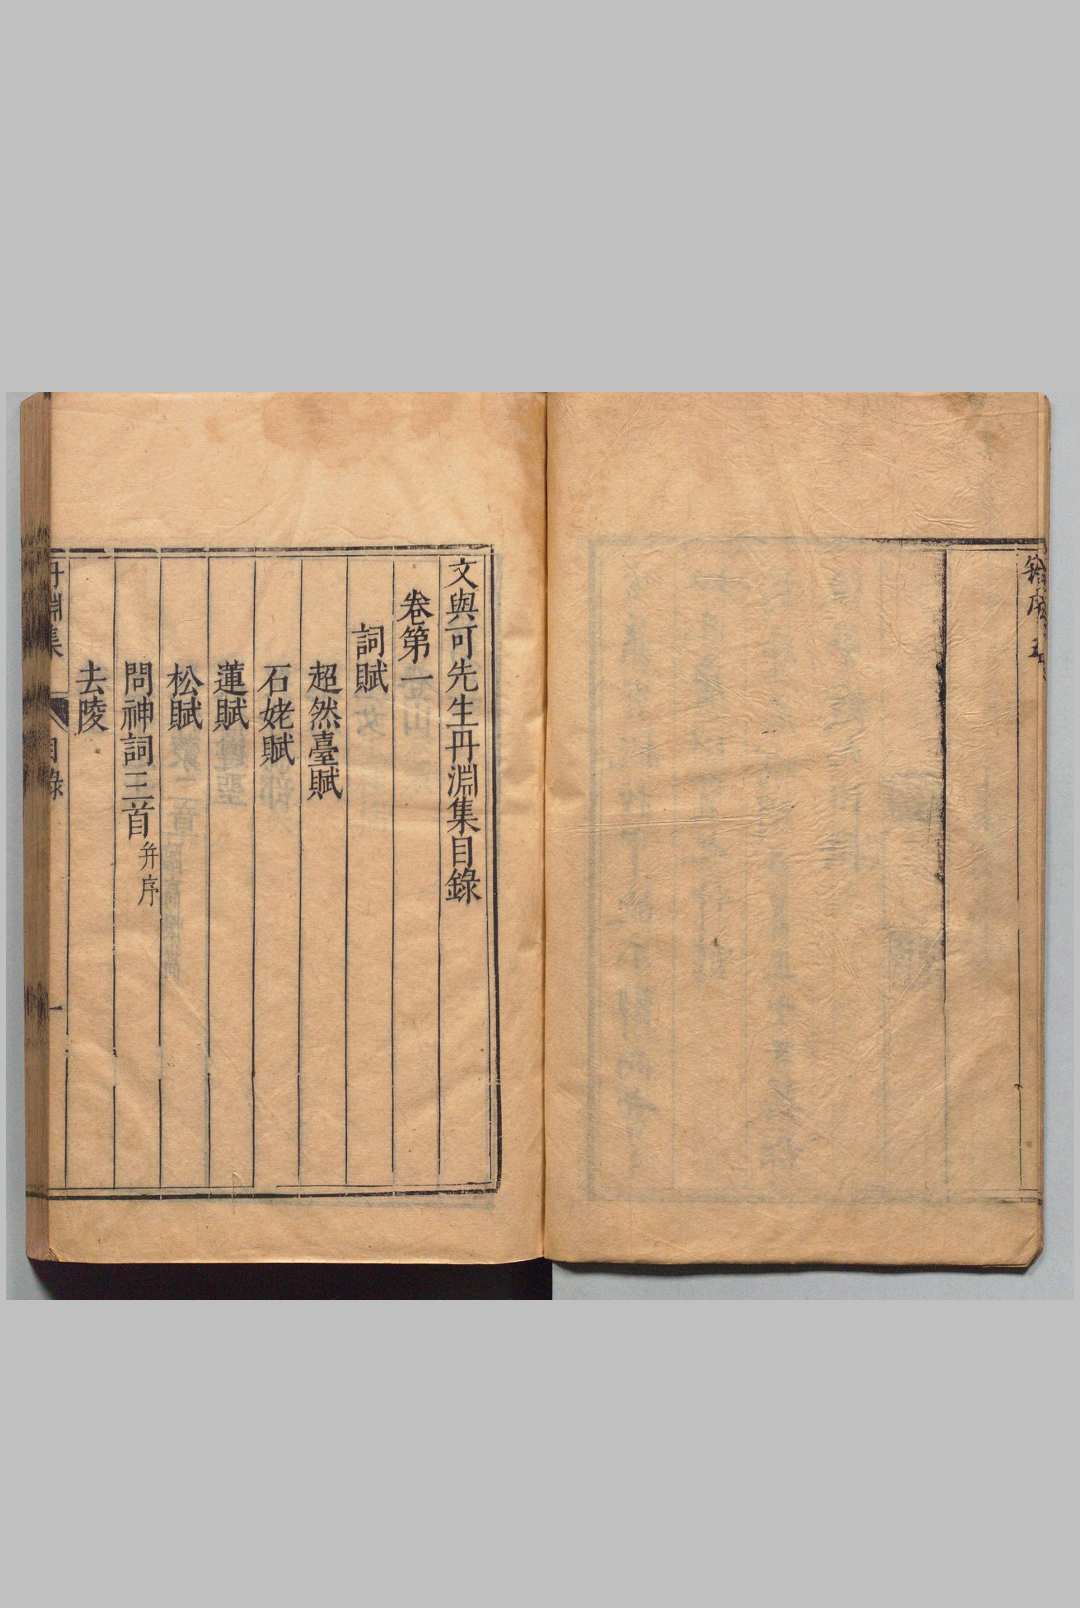 文與可先生丹淵集目錄
卷第一
詞賦
超然臺賦
石姥賦
蓮賦
松賦
問神詞三首并序
去陵
丹淵集 目錄 一